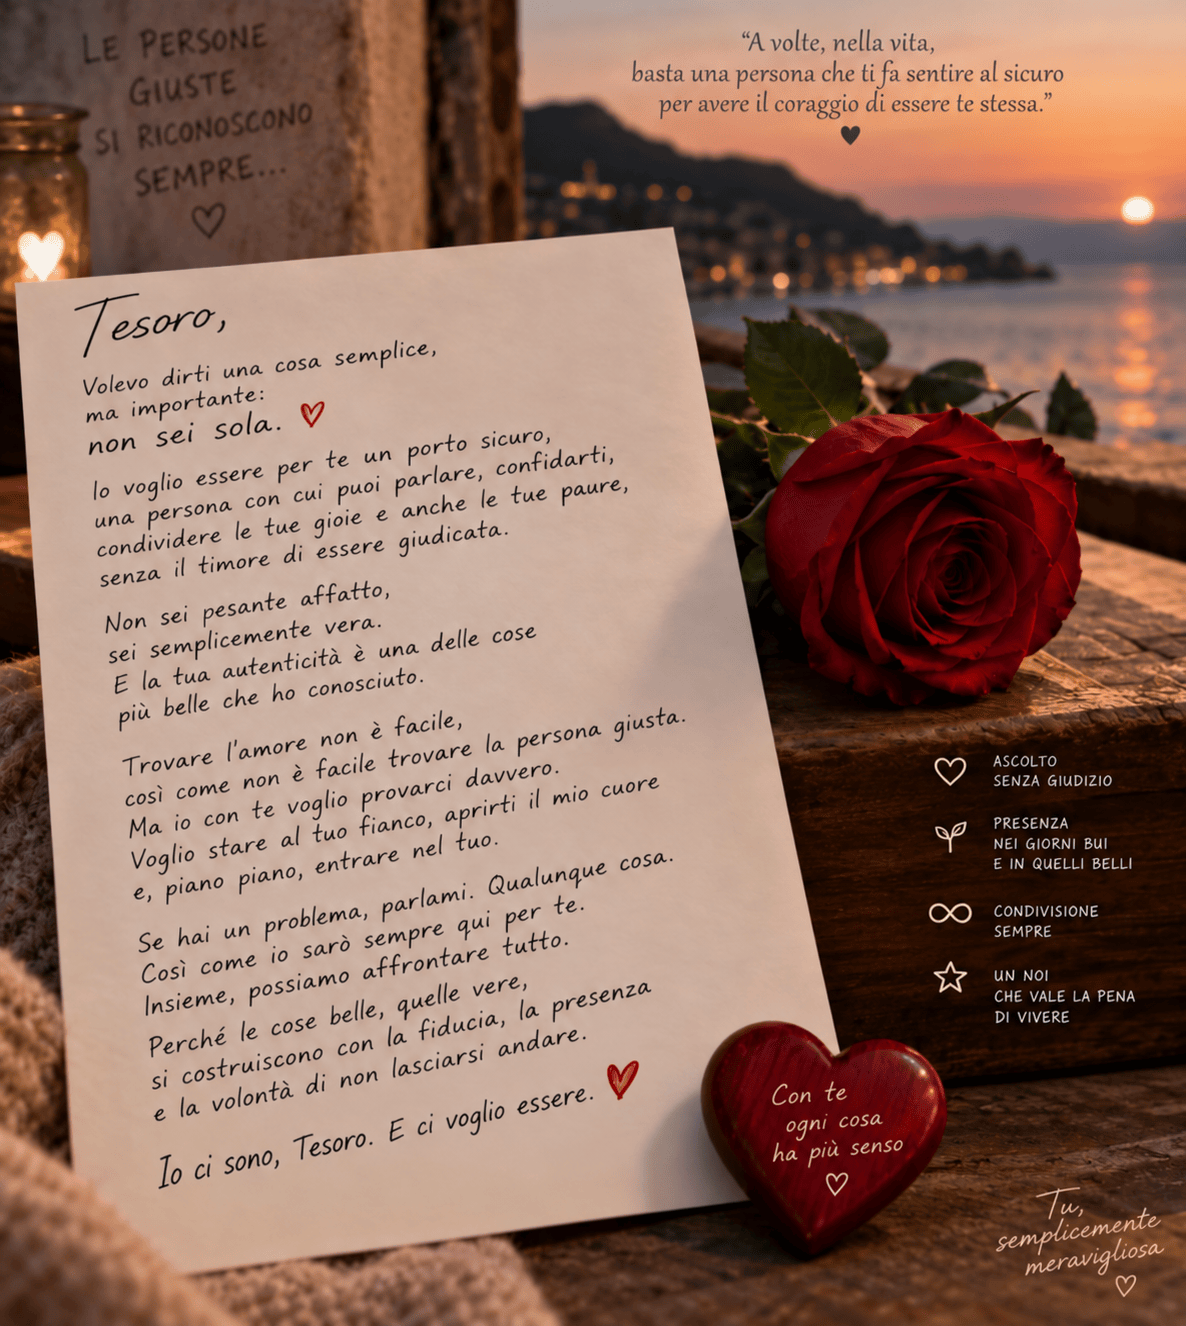 LE PERSONE
GIUSTE
SI RICONOSCONO
SEMPRE...
"A volte, nella vita,
basta una persona che ti fa sentire al sicuro
per avere il coraggio di essere te stessa."
Tesoro,
Volevo dirti una cosa semplice,
ma importante:
non sei sola.
Io voglio essere per te un porto sicuro,
una persona con cui puoi parlare, confidarti,
condividere le tue gioie e anche le tue paure,
senza il timore di essere giudicata.
Non sei pesante affatto,
sei semplicemente vera.
E la tua autenticità è una delle cose
più belle che ho conosciuto.
Trovare l'amore non è facile,
così come non è facile trovare la persona giusta.
Ma io con te voglio provarci davvero.
Voglio stare al tuo fianco, aprirti il mio cuore
e, piano piano, entrare nel tuo.
Se hai un problema, parlami. Qualunque cosa.
Così come io sarò sempre qui per te.
Insieme, possiamo affrontare tutto.
Perché le cose belle, quelle vere,
si costruiscono con la fiducia, la presenza
e la volontà di non lasciarsi andare.
Io ci sono, Tesoro. E ci voglio essere.
ASCOLTO
SENZA GIUDIZIO
PRESENZA
NEI GIORNI BUI
E IN QUELLI BELLI
CONDIVISIONE
SEMPRE
UN NOI
CHE VALE LA PENA
DI VIVERE
Con te
ogni cosa
ha più senso
Tu,
semplicemente
meravigliosa